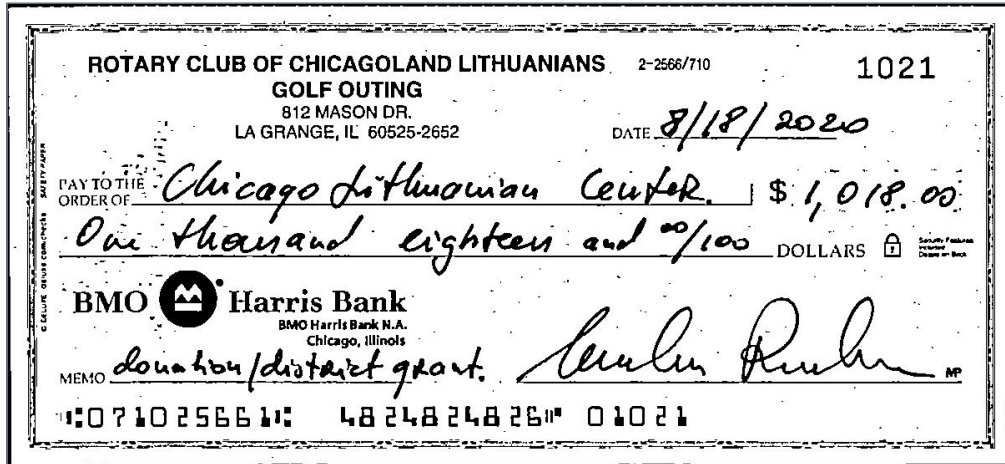 ROTARY CLUB OF CHICAGOLAND LITHUANIANS 2-2566/710 1021
GOLF OUTING
812 MASON DR.
LA GRANGE, IL 60525-2652
DATE 8/18/2020
PAY TO THE ORDER OF Chicago Lithuanian Center. $ 1,018.00
One thousand eighteen and 00/100 DOLLARS
Security Features Included Details on Back
BMO Harris Bank
BMO Harris Bank N.A.
Chicago, Illinois
MEMO donation/district grant. MP
⑆071025661⑆ 4824824826⑈ 01021